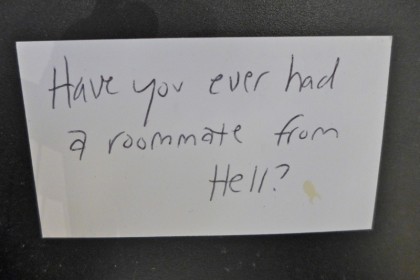 Have you ever had
a roommate from
Hell?